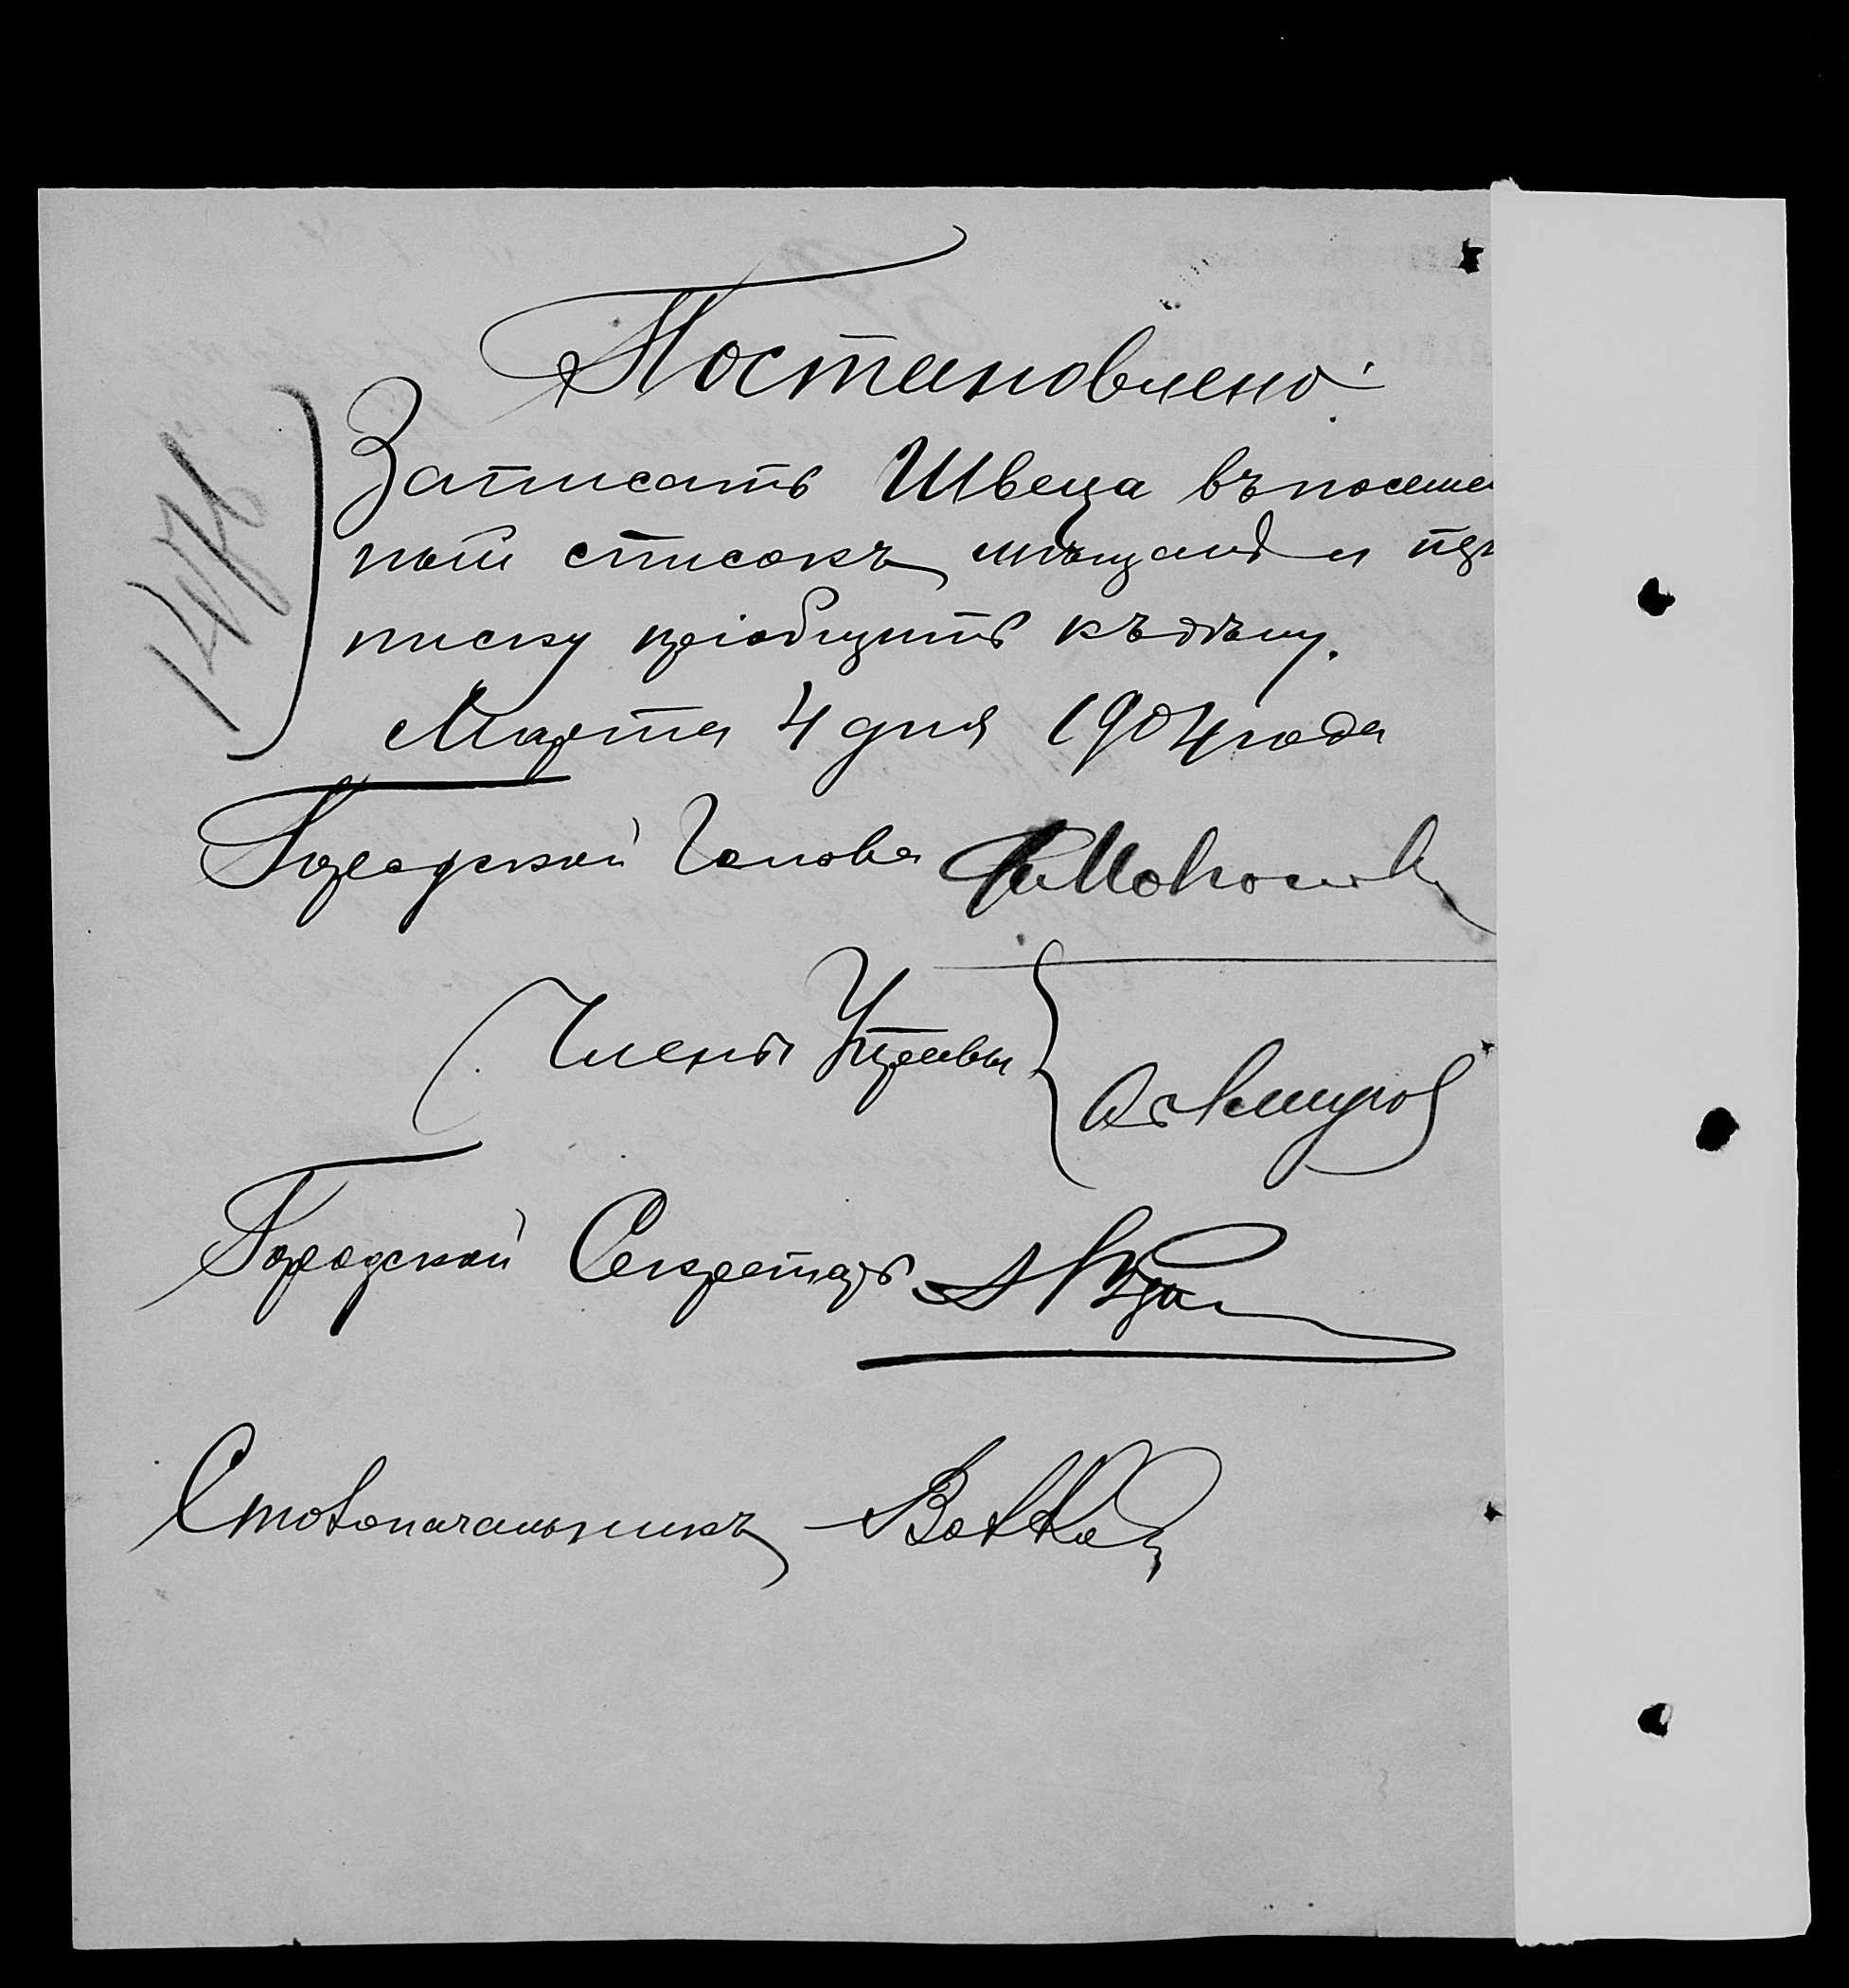 Постановлено:
Записать Швеца въ посемей
ный списокъ мѣщанъ и пере
писку пріобщить къ дѣлу.
Марта 4 дня 1904 года
Городской Голова
Члены Управы
Городской Секретарь
Столоначальникъ